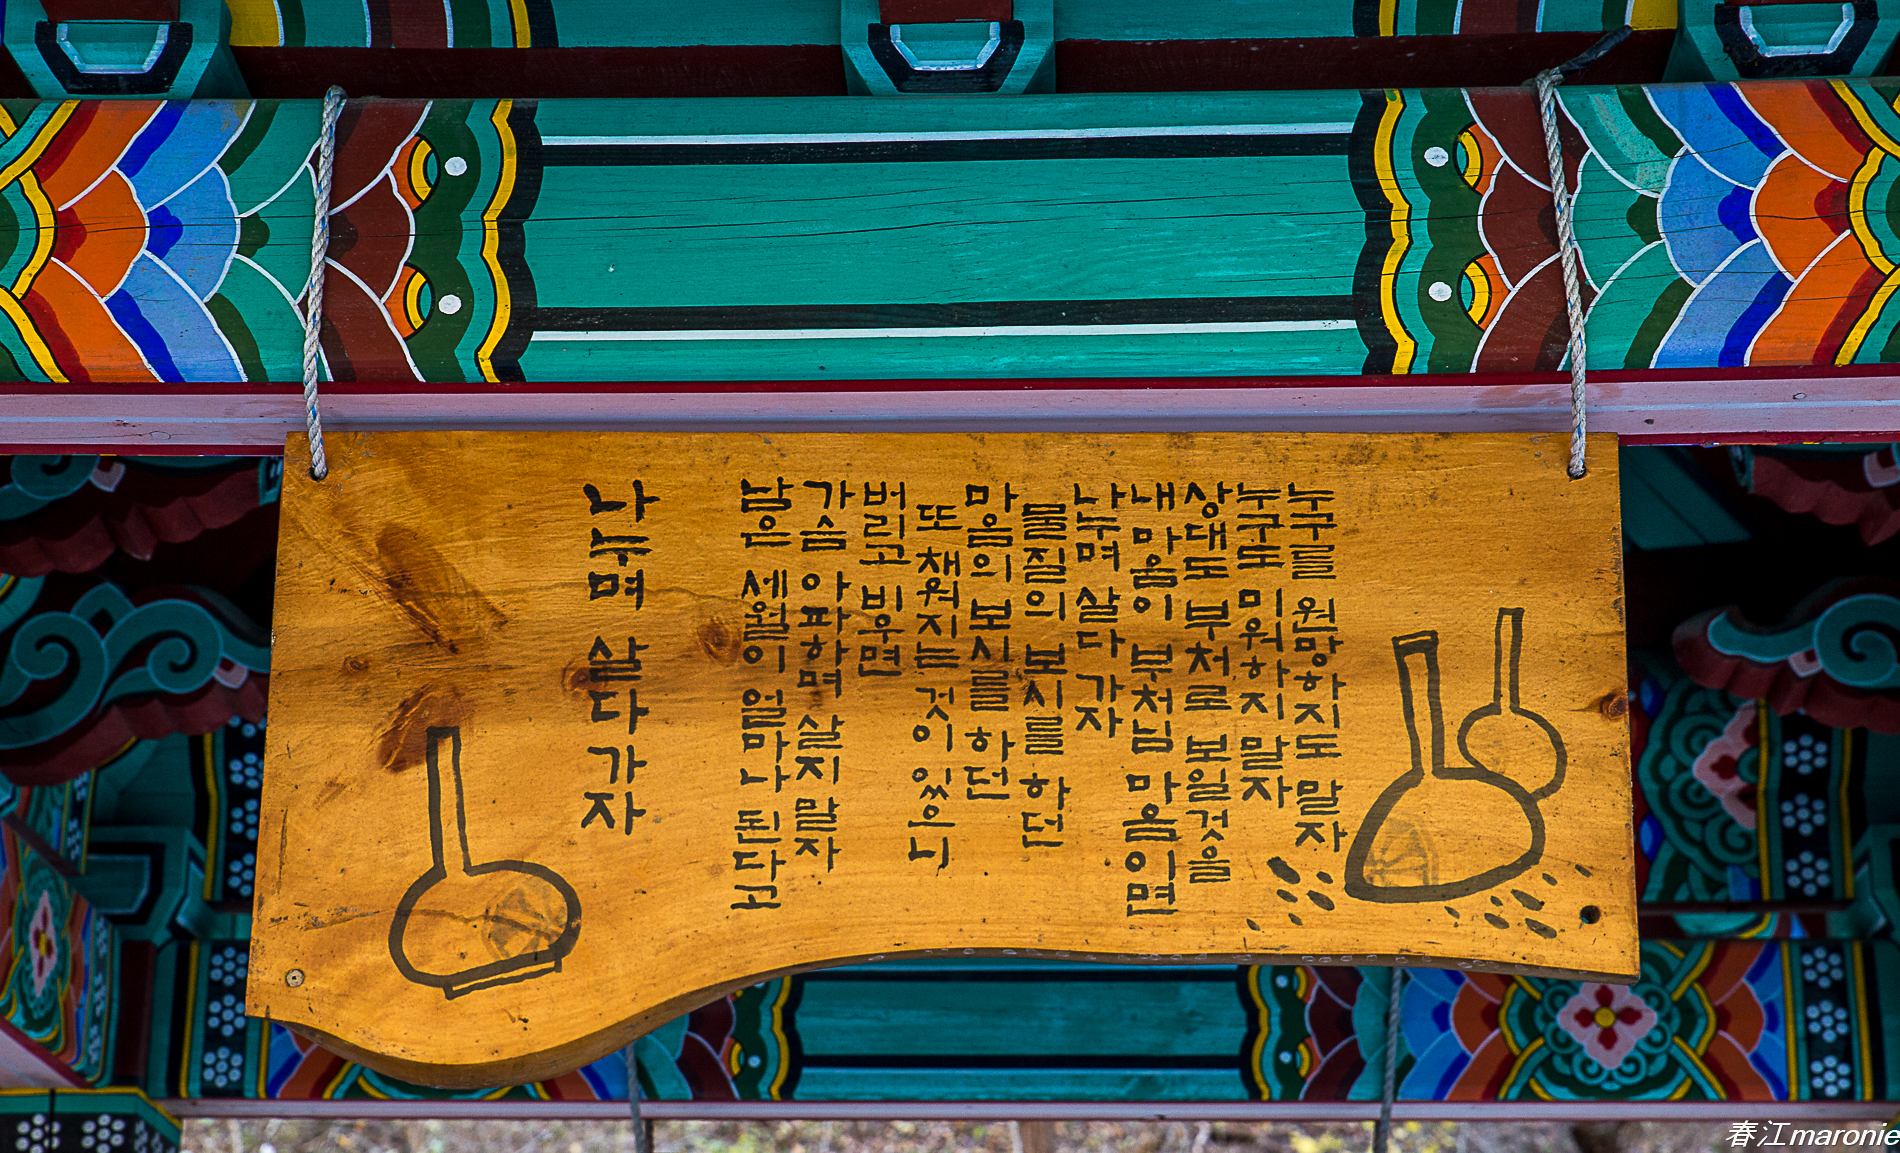 누구를 원망하지도 말자
누구도 미워하지 말자
상대도 부처로 보일것을
내 마음이 부처님 마음이면
나누며 살다 가자
물질의 보시를 하던
마음의 보시를 하던
또 채워지는 것이 있으니
버리고 비우면
가슴 아파하며 살지 말자
남은 세월이 얼마나 된다고
나누며 살다 가자
春江maronie